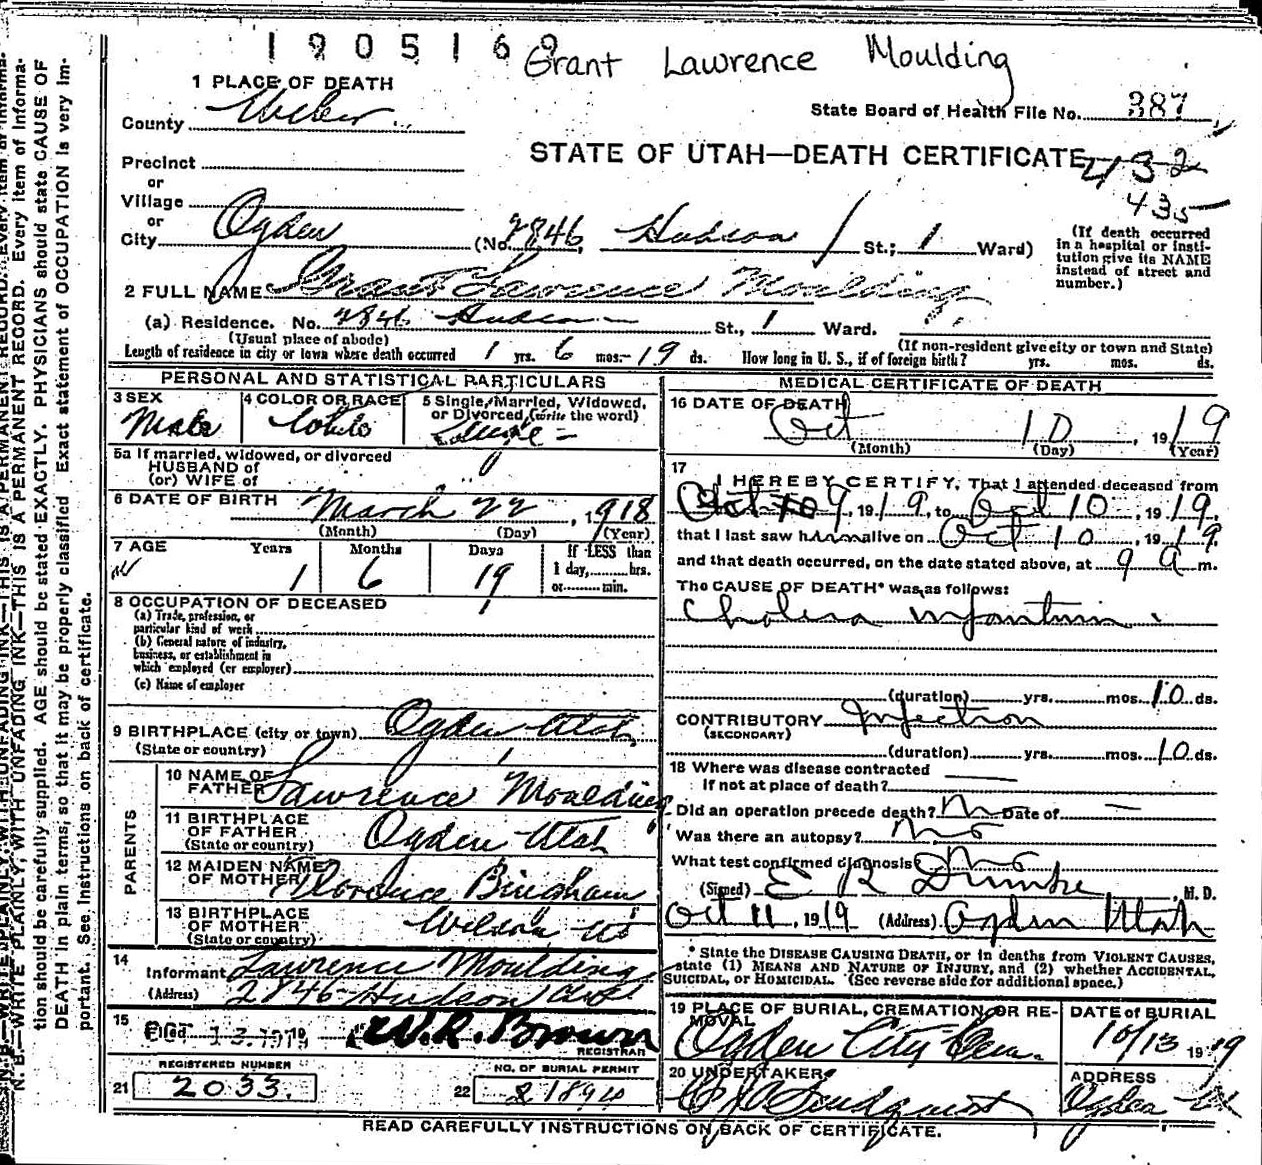 1905169 Grant Lawrence Moulding
1 PLACE OF DEATH
County Weber
State Board of Health File No. 387
STATE OF UTAH—DEATH CERTIFICATE
432
435
Precinct
or
Village
or
City Ogden (No. 2846, Hudson St.; 1 Ward)
(If death occurred in a hospital or insti-
tution give its NAME
instead of street and
number.)
2 FULL NAME Grant Lawrence Moulding
(a) Residence. No. 2846 Hudson St., 1 Ward.
(Usual place of abode) (If non-resident give city or town and State)
Length of residence in city or town where death occurred 1 yrs. 6 mos. 19 ds. How long in U. S., if of foreign birth? yrs. mos. ds.
PERSONAL AND STATISTICAL PARTICULARS
3 SEX 4 COLOR OR RACE 5 Single, Married, Widowed,
or Divorced (write the word)
Male White Single
5a If married, widowed, or divorced
HUSBAND of
(or) WIFE of
6 DATE OF BIRTH March 22, 1918
(Month) (Day) (Year)
7 AGE Years Months Days If LESS than
1 day, hrs.
or min.
1 6 19
8 OCCUPATION OF DECEASED
(a) Trade, profession, or
particular kind of work
(b) General nature of industry,
business, or establishment in
which employed (or employer)
(c) Name of employer
9 BIRTHPLACE (city or town) Ogden Utah
(State or country)
PARENTS
10 NAME OF
FATHER Lawrence Moulding
11 BIRTHPLACE
OF FATHER Ogden Utah
(State or country)
12 MAIDEN NAME
OF MOTHER Florence Bingham
13 BIRTHPLACE
OF MOTHER Wilson Ut
(State or country)
14
Informant Lawrence Moulding
(Address) 2846 Hudson Ave
15 Filed OCT 13 1919 W. R. Brown
REGISTRAR
REGISTERED NUMBER NO. OF BURIAL PERMIT
21 2033. 22 21894
MEDICAL CERTIFICATE OF DEATH
16 DATE OF DEATH
Oct 10, 1919
(Month) (Day) (Year)
17
I HEREBY CERTIFY, That I attended deceased from
Oct 9, 1919, to Oct 10, 1919,
that I last saw him alive on Oct 10, 1919,
and that death occurred, on the date stated above, at 9 a m.
The CAUSE OF DEATH* was as follows:
Cholera infantum
(duration) yrs. mos. 10 ds.
CONTRIBUTORY Infection
(SECONDARY)
(duration) yrs. mos. 10 ds.
18 Where was disease contracted
If not at place of death?
Did an operation precede death? No Date of —
Was there an autopsy? No
What test confirmed diagnosis? No
(Signed) E R Dumke, M. D.
Oct 11, 1919 (Address) Ogden Utah
* State the DISEASE CAUSING DEATH, or in deaths from VIOLENT CAUSES,
state (1) MEANS AND NATURE OF INJURY, and (2) whether ACCIDENTAL,
SUICIDAL, or HOMICIDAL. (See reverse side for additional space.)
19 PLACE OF BURIAL, CREMATION, OR RE-
MOVAL DATE of BURIAL
Ogden City Cem. 10/13 1919
20 UNDERTAKER ADDRESS
Lindquist Ogden Ut
READ CAREFULLY INSTRUCTIONS ON BACK OF CERTIFICATE.
N. B.—WRITE PLAINLY, WITH UNFADING INK—THIS IS A PERMANENT RECORD. Every item of informa-
tion should be carefully supplied. AGE should be stated EXACTLY. PHYSICIANS should state CAUSE OF
DEATH in plain terms, so that it may be properly classified. Exact statement of OCCUPATION is very im-
portant. See instructions on back of certificate.